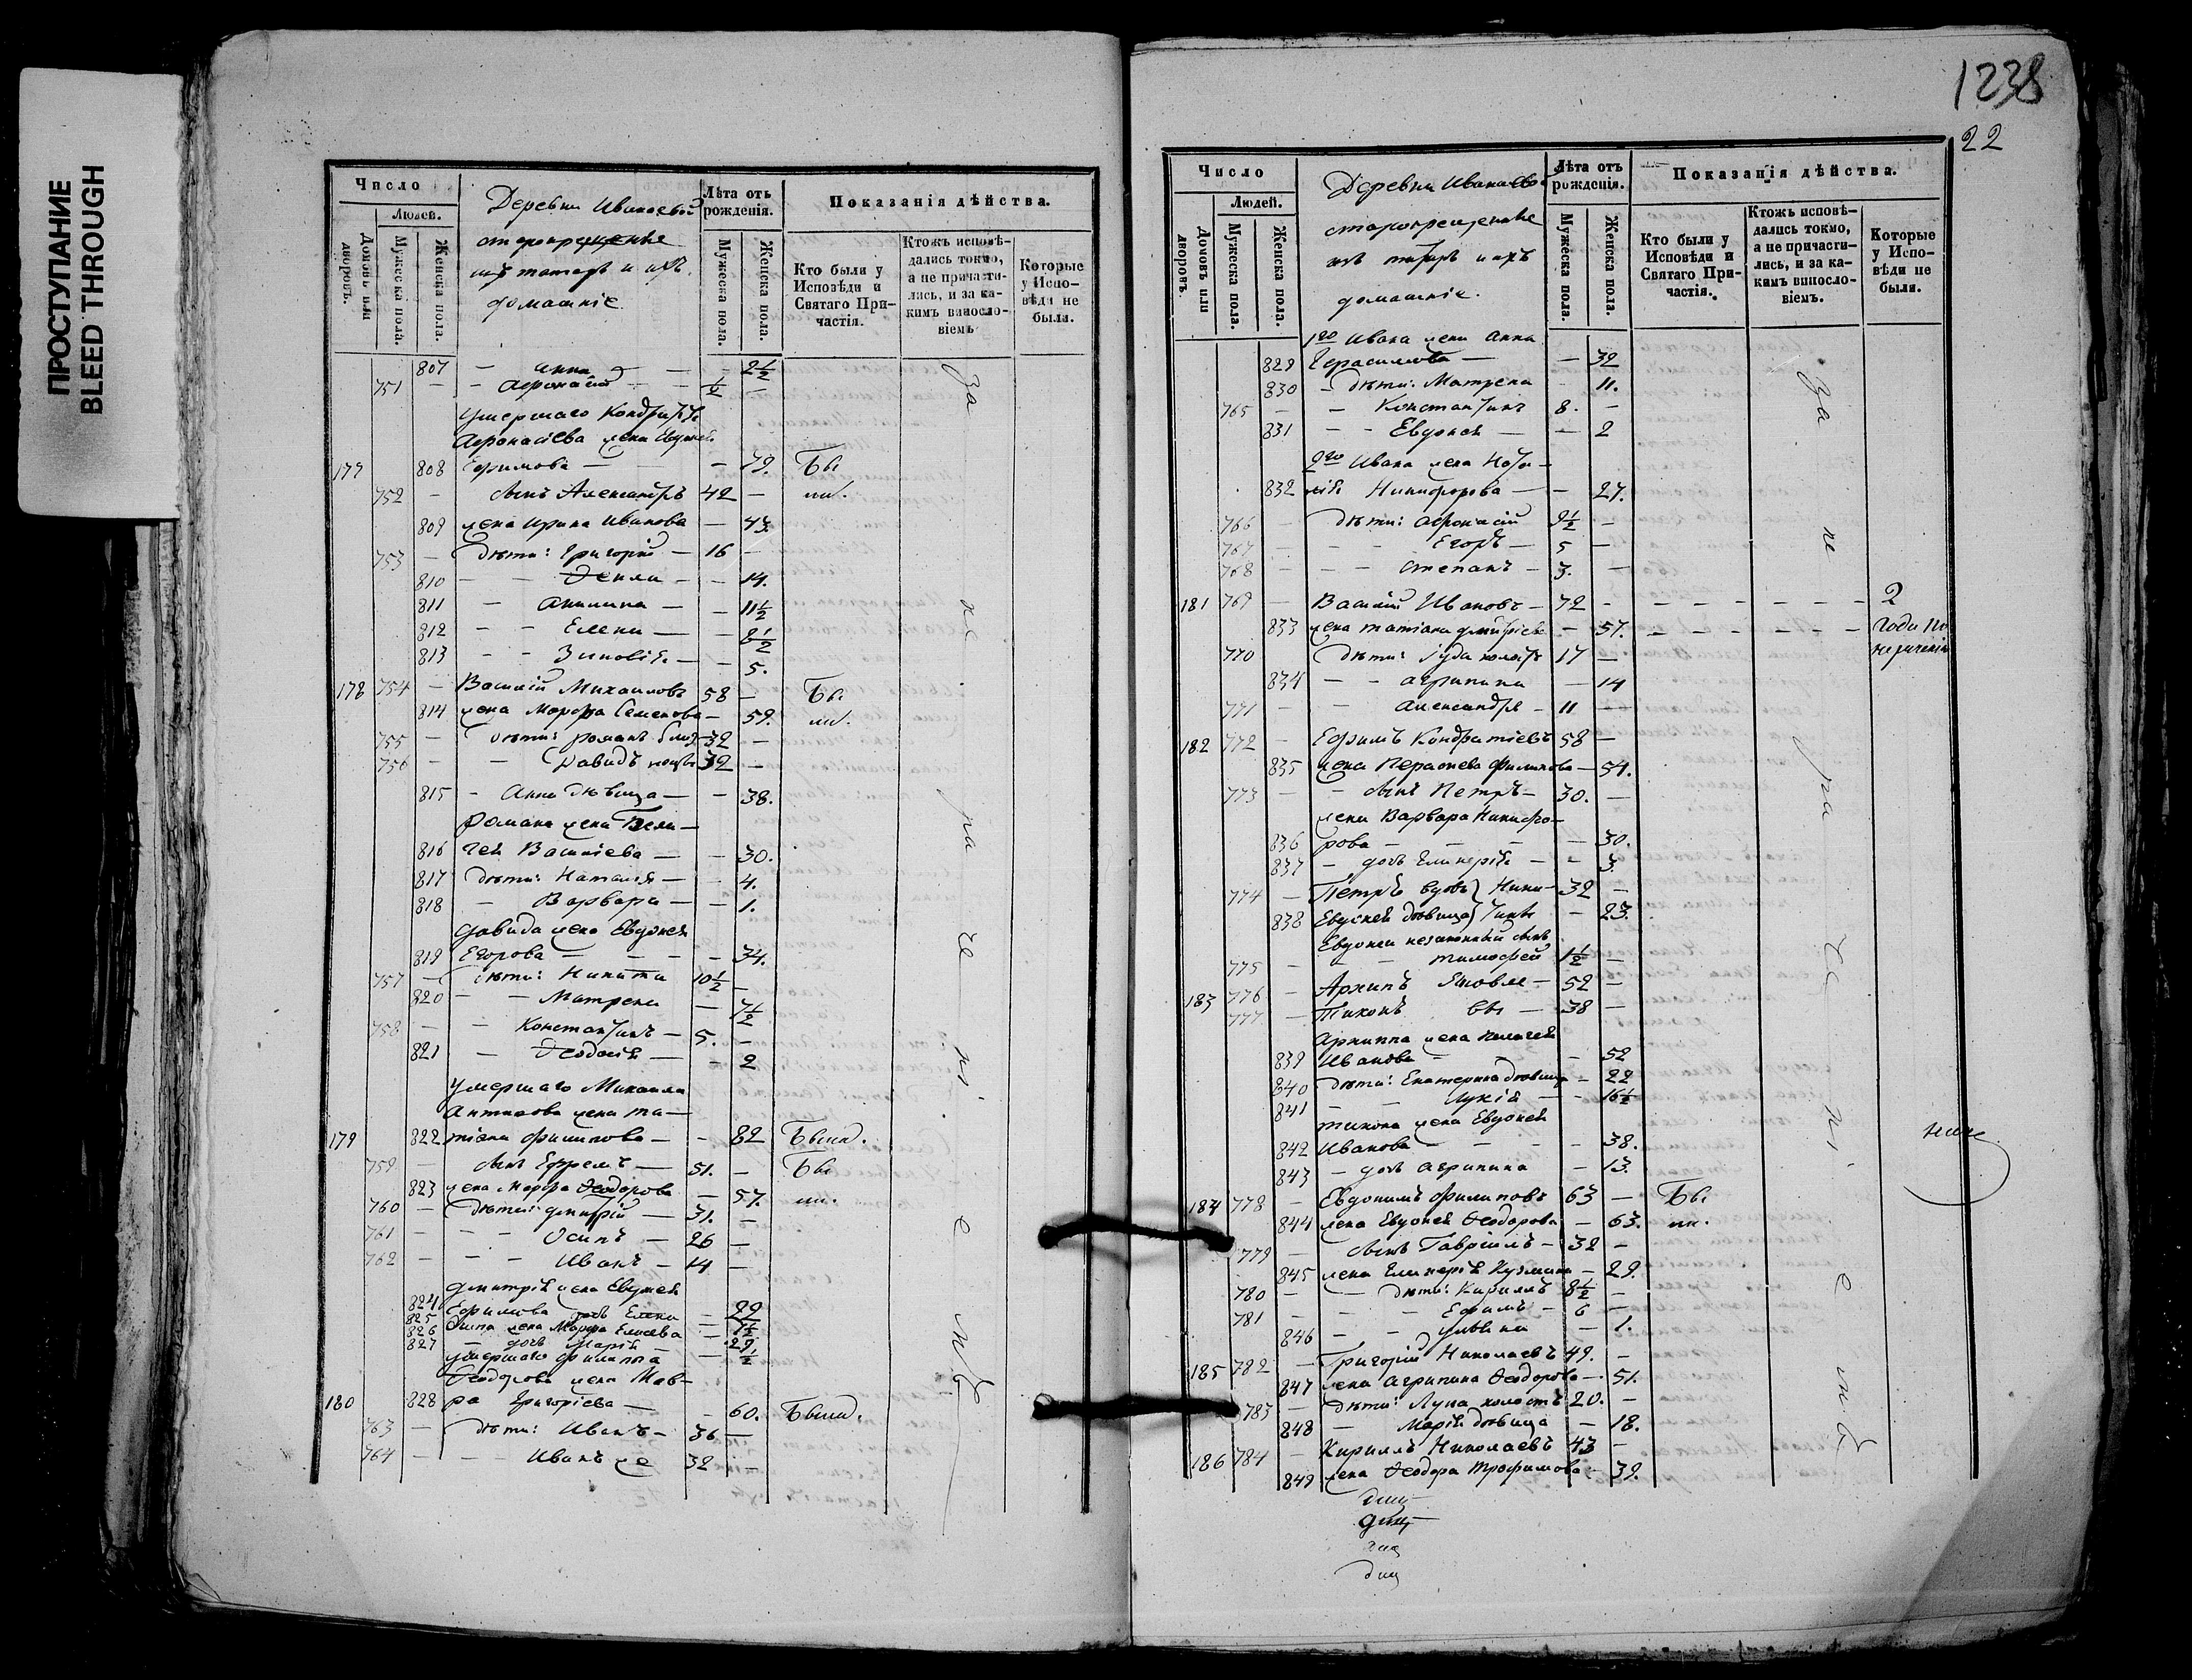 ПРОСТУПАНИЕ
BLEED THROUGH
Число
Людей.
Домовъ или дворовъ.
Мужеска пола.
Женска пола.
Деревни Иванаевой
старокрещеные
изъ татаръ и ихъ
домашніе.
Лѣта отъ рожденія.
Мужеска пола.
Женска пола.
Показанія дѣйства.
Кто были у Исповѣди и Святаго Причастія.
Ктожъ исповѣдались токмо, а не причастились, и за какимъ винословіемъ
Которые у Исповѣди не были.
807 — Анна — — 2½
751 — — Афонасій — ½ —
Умершаго Кондратія
Афонасіева жена Евдокія
177 808 Ефимова — — 79. Бы
752 — сынъ Александръ 42 — ли.
809 жена Ирина Иванова — 43.
753 — дѣти: Григорій — 16 —
810 — — Ѳекла — — 14.
811 — Акилина — — 11½
812 — — Елена — — 8½
813 — — Зиновія — — 5.
178 754 — Василій Михаиловъ 58 — Бы
814 жена Марфа Семенова — 59. ли.
755 — дѣти: Романъ 32 —
756 — — Давидъ 32 —
815 — Анна дѣвица — — 38.
Романа жена Пела—
816 гея Василіева — — 30.
817 дѣти: Наталія — — 4.
818 — Варвара — — 1.
Давида жена Евдокія
819 Егорова — — — 34.
757 — дѣти: Никита 10½ —
820 — — Матрена — 7½
758 — — Константинъ — 5. —
821 — Ѳеодосія — — 2
Умершаго Михаила
Антипова жена Та—
179 822 тіана Филипова — — 82 Была.
759 — сынъ Ефремъ — 51. — Бы
823 жена Марфа Ѳеодорова — 57. ли.
760 — дѣти: Дмитрій — 31. —
761 — — — Осипъ — 26 —
762 — — — Иванъ — 14 —
Дмитрія жена Евдокія
824 Ефимова — 29
825 дочь Елена — 1½
826 Осипа жена Марфа Елисеева — 29.
827 — дочь Марія — ½
умершаго Филиппа
Ѳеодорова жена Мав—
180 828 ра Григоріева — — 60. Была.
763 — дѣти: Иванъ — 36 —
764 — — — Иванъ же 32 —
За не ра че ні е мъ
1238
22
Число
Людей.
Домовъ или дворовъ.
Мужеска пола.
Женска пола.
Деревни Иванаевой
старокрещеные
изъ татаръ и ихъ
домашніе.
Лѣта отъ рожденія.
Мужеска пола.
Женска пола.
Показанія дѣйства.
Кто были у Исповѣди и Святаго Причастія.
Ктожъ исповѣдались токмо, а не причастились, и за какимъ винословіемъ.
Которые у Исповѣди не были.
1го Ивана жена Анна
829 Герасимова — — 32
830 — дѣти: Матрена — 11.
765 — — Константинъ 8. —
831 — — Евдокія — — 2
2го Ивана жена Ната—
832 лія Никифорова — — 27.
766 — дѣти: Афонасій 9½ —
767 — — — Егоръ — 5 —
768 — — — Степанъ — 3. —
181 769 — Василій Ивановъ — 72 — — — — — — 2
833 жена Татіана Дмитріева — 57. — — — — — года по
770 дѣти: Іуда холостъ 17 — нераченію
834 — — Агрипина — 14
771 — — Александръ — 11 —
182 772 — Ефимъ Кондратіевъ 58 —
835 жена Парасковья Филипова — 54.
773 — — сынъ Петръ — 30. —
жена Варвара Никифо—
836 рова — — — — 30.
837 — дочь Гликерія — — 3.
774 — Петръ вдовъ Ники— 32 —
838 Евдокія дѣвица тины — 23.
Евдокіи незаконный сынъ
775 — — — Тимофей 1½ —
183 776 — Архипъ Яковле— 52 —
777 — Тихонъ вы — 38 —
Архипа жена Пелагея
839 Иванова — — 52
840 дѣти: Екатерина дѣвица — 22
841 — — Лукія — — 16½
Тихона жена Евдокія
842 Иванова — — — — 38.
843 — дочь Агрипина — 13.
184 778 — Евдокимъ Филиповъ 63 — Бы
844 жена Евдокія Ѳеодорова — 63. ли.
779 — сынъ Гавріилъ — 32 —
845 жена Гликерія Кузмина — 29.
780 — — дѣти: Кириллъ 8½ —
781 — — — Ефимъ — 6 —
846 — — Ульяна — 1.
185 782 — Григорій Николаевъ 49. —
847 жена Агрипина Ѳеодорова — 51.
783 — дѣти: Лука холостъ 20. —
848 — Марія дѣвица — 18.
186 784 — Кириллъ Николаевъ 43 —
849 жена Ѳеодора Трофимова — 39.
За не ра че ні е мъ